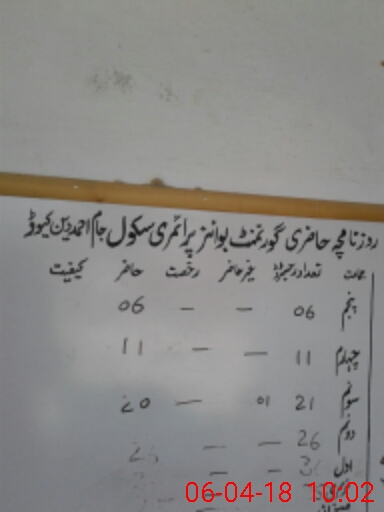 روزنامچہ حاضری گورنمنٹ بوائز پرائمری سکول جام احمد دین کیہوڈ
جماعت تعداد رجسٹرڈ غیر حاضر رخصت حاضر کیفیت
پنجم 06 — — 06
چہارم 11 — — 11
سوئم 21 01 — 20
دوئم 26 — —
اول
06-04-18 10:02